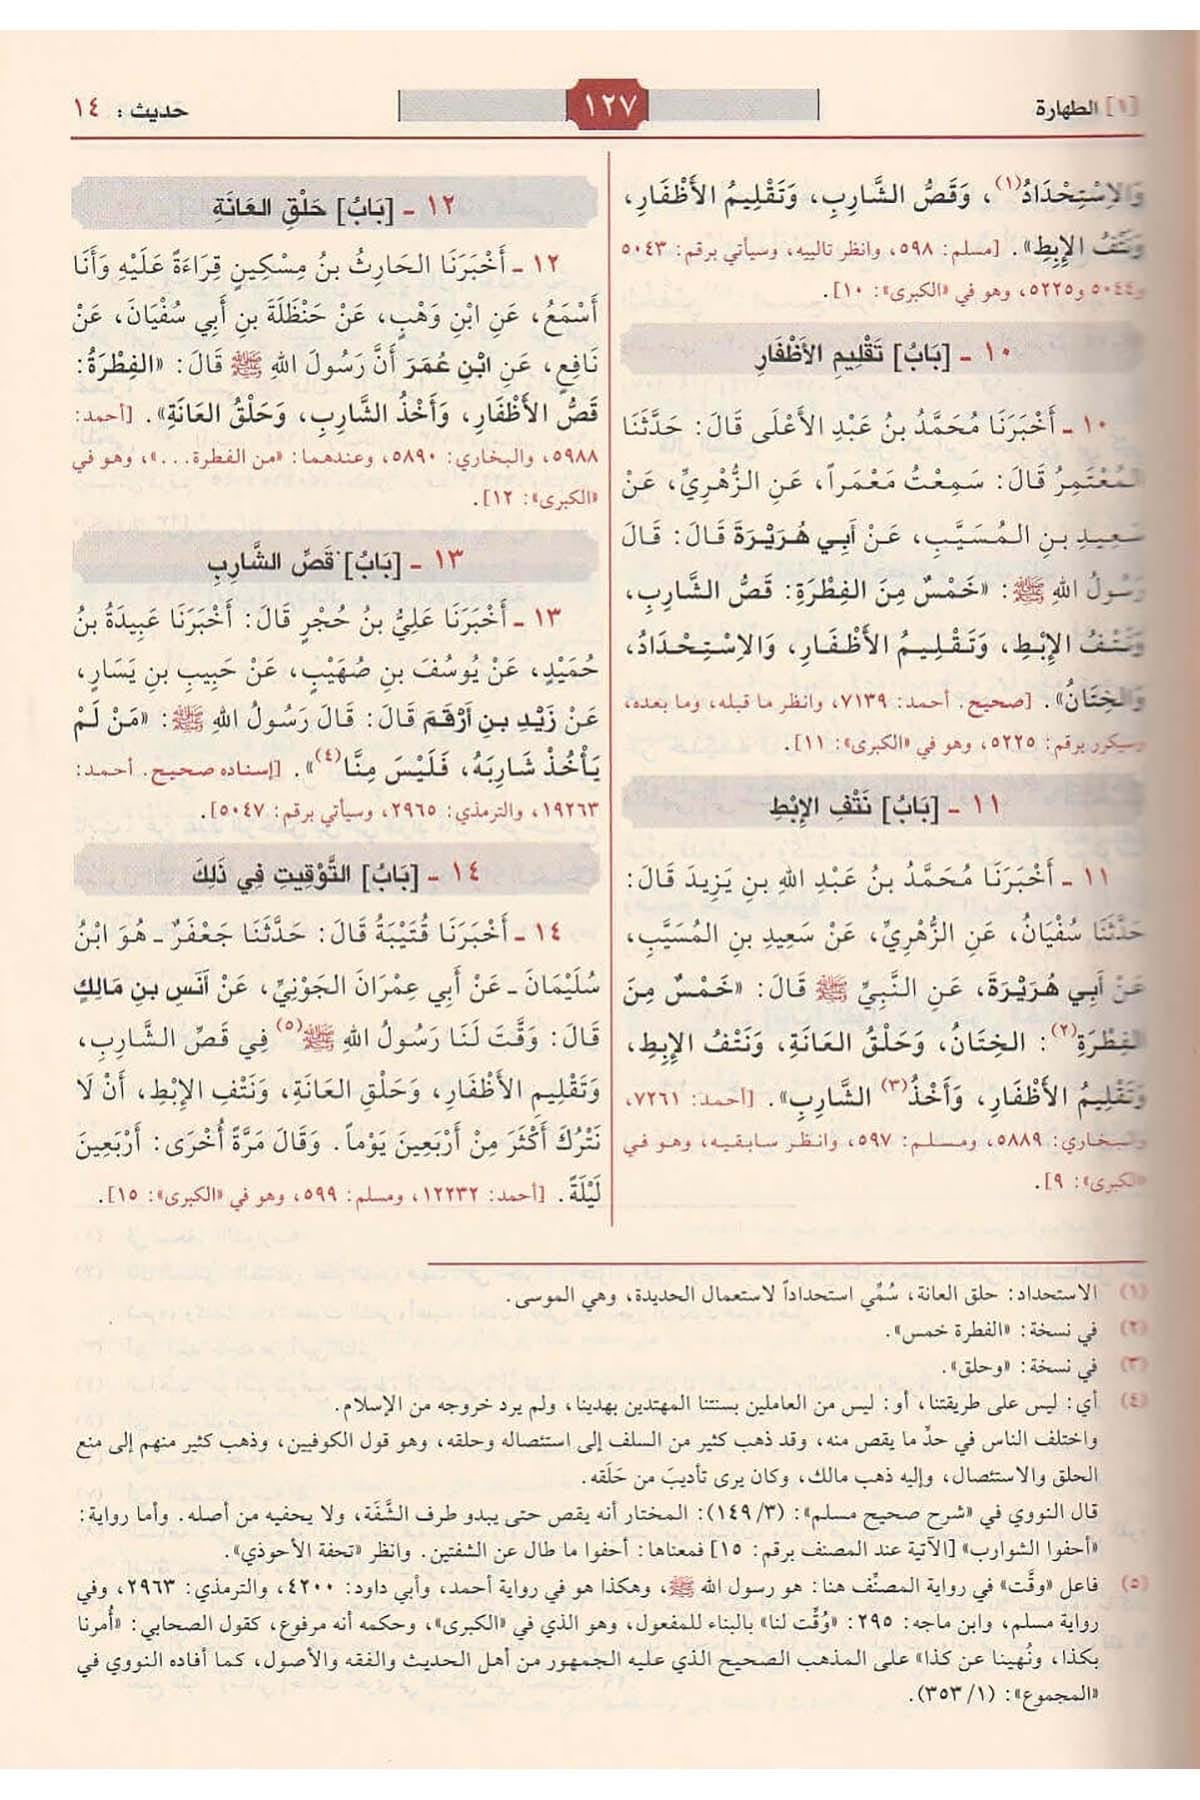 [١] الطهارة
١٢٧
حديث: ١٤
وَالِاسْتِحْدَادُ(١)، وَقَصُّ الشَّارِبِ، وَتَقْلِيمُ الأَظْفَارِ،
وَنَتْفُ الإِبِطِ». [مسلم: ٥٩٨، وانظر تالييه، وسيأتي برقم: ٥٠٤٣
و٥٠٤٤ و٥٢٢٥، وهو في «الكبرى»: ١٠].
١٠ - [بَابُ] تَقْلِيمِ الأَظْفَارِ
١٠ - أَخْبَرَنَا مُحَمَّدُ بنُ عَبْدِ الأَعْلَى قَالَ: حَدَّثَنَا
المُعْتَمِرُ قَالَ: سَمِعْتُ مَعْمَراً، عَنِ الزُّهْرِيِّ، عَنْ
سَعِيدِ بنِ المُسَيَّبِ، عَنْ أَبِي هُرَيْرَةَ قَالَ: قَالَ
رَسُولُ اللهِ ﷺ: «خَمْسٌ مِنَ الفِطْرَةِ: قَصُّ الشَّارِبِ،
وَنَتْفُ الإِبْطِ، وَتَقْلِيمُ الأَظْفَارِ، وَالِاسْتِحْدَادُ،
وَالخِتَانُ». [صحيح. أحمد: ٧١٣٩، وانظر ما قبله، وما بعده،
وسيكرر برقم: ٥٢٢٥، وهو في «الكبرى»: ١١].
١١ - [بَابُ] نَتْفِ الإِبْطِ
١١ - أَخْبَرَنَا مُحَمَّدُ بنُ عَبْدِ اللهِ بنِ يَزِيدَ قَالَ:
حَدَّثَنَا سُفْيَانُ، عَنِ الزُّهْرِيِّ، عَنْ سَعِيدِ بنِ المُسَيَّبِ،
عَنْ أَبِي هُرَيْرَةَ، عَنِ النَّبِيِّ ﷺ قَالَ: «خَمْسٌ مِنَ
الفِطْرَةِ(٢): الخِتَانُ، وَحَلْقُ العَانَةِ، وَنَتْفُ الإِبِطِ،
وَتَقْلِيمُ الأَظْفَارِ، وَأَخْذُ(٣) الشَّارِبِ». [أحمد: ٧٢٦١،
والبخاري: ٥٨٨٩، ومسلم: ٥٩٧، وانظر سابقيه، وهو في
«الكبرى»: ٩].
١٢ - [بَابُ] حَلْقِ العَانَةِ
١٢ - أَخْبَرَنَا الحَارِثُ بنُ مِسْكِينٍ قِرَاءَةً عَلَيْهِ وَأَنَا
أَسْمَعُ، عَنِ ابْنِ وَهْبٍ، عَنْ حَنْظَلَةَ بنِ أَبِي سُفْيَانَ، عَنْ
نَافِعٍ، عَنِ ابْنِ عُمَرَ أَنَّ رَسُولَ اللهِ ﷺ قَالَ: «الفِطْرَةُ:
قَصُّ الأَظْفَارِ، وَأَخْذُ الشَّارِبِ، وَحَلْقُ العَانَةِ». [أحمد:
٥٩٨٨، والبخاري: ٥٨٩٠، وعندهما: «من الفطرة...»، وهو في
«الكبرى»: ١٢].
١٣ - [بَابُ] قَصِّ الشَّارِبِ
١٣ - أَخْبَرَنَا عَلِيُّ بنُ حُجْرٍ قَالَ: أَخْبَرَنَا عَبِيدَةُ بنُ
حُمَيْدٍ، عَنْ يُوسُفَ بنِ صُهَيْبٍ، عَنْ حَبِيبِ بنِ يَسَارٍ،
عَنْ زَيْدِ بنِ أَرْقَمَ قَالَ: قَالَ رَسُولُ اللهِ ﷺ: «مَنْ لَمْ
يَأْخُذْ شَارِبَهُ، فَلَيْسَ مِنَّا(٤)». [إسناده صحيح. أحمد:
١٩٢٦٣، والترمذي: ٢٩٦٥، وسيأتي برقم: ٥٠٤٧].
١٤ - [بَابُ] التَّوْقِيتِ فِي ذَلِكَ
١٤ - أَخْبَرَنَا قُتَيْبَةُ قَالَ: حَدَّثَنَا جَعْفَرٌ - هُوَ ابْنُ
سُلَيْمَانَ - عَنْ أَبِي عِمْرَانَ الجَوْنِيِّ، عَنْ أَنَسِ بنِ مَالِكٍ
قَالَ: وَقَّتَ لَنَا رَسُولُ اللهِ ﷺ(٥) فِي قَصِّ الشَّارِبِ،
وَتَقْلِيمِ الأَظْفَارِ، وَحَلْقِ العَانَةِ، وَنَتْفِ الإِبْطِ، أَنْ لَا
نَتْرُكَ أَكْثَرَ مِنْ أَرْبَعِينَ يَوْماً. وَقَالَ مَرَّةً أُخْرَى: أَرْبَعِينَ
لَيْلَةً. [أحمد: ١٢٢٣٢، ومسلم: ٥٩٩، وهو في «الكبرى»: ١٥].
(١) الاستحداد: حلق العانة، سُمِّي استحداداً لاستعمال الحديدة، وهي الموسى.
(٢) في نسخة: «الفطرة خمس».
(٣) في نسخة: «وحلق».
(٤) أي: ليس على طريقتنا، أو: ليس من العاملين بسنتنا المهتدين بهدينا، ولم يرد خروجه من الإسلام.
واختلف الناس في حدِّ ما يقص منه، وقد ذهب كثير من السلف إلى استئصاله وحلقه، وهو قول الكوفيين، وذهب كثير منهم إلى منع
الحلق والاستئصال، وإليه ذهب مالك، وكان يرى تأديبَ من حَلَقه.
قال النووي في «شرح صحيح مسلم»: (٣/ ١٤٩): المختار أنه يقص حتى يبدو طرف الشَّفَة، ولا يحفيه من أصله. وأما رواية:
«أحفوا الشوارب» [الآتية عند المصنف برقم: ١٥] فمعناها: أحفوا ما طال عن الشفتين. وانظر «تحفة الأحوذي».
(٥) فاعل «وقَّت» في رواية المصنِّف هنا: هو رسول الله ﷺ، وهكذا هو في رواية أحمد، وأبي داود: ٤٢٠٠، والترمذي: ٢٩٦٣، وفي
رواية مسلم، وابن ماجه: ٢٩٥: «وُقِّت لنا» بالبناء للمفعول، وهو الذي في «الكبرى»، وحكمه أنه مرفوع، كقول الصحابي: «أُمرنا
بكذا، ونُهينا عن كذا» على المذهب الصحيح الذي عليه الجمهور من أهل الحديث والفقه والأصول، كما أفاده النووي في
«المجموع»: (١/ ٣٥٣).